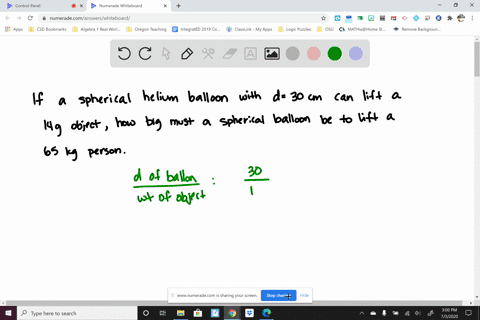 Control Panel
Numerade Whiteboard
numerade.com/answers/whiteboard/
Apps
CSD Bookmarks
Algebra 1 Real Worl...
Oregon Teaching
IntegratED 2018 Co...
ClassLink - My Apps
Logic Puzzles
OSU
MATHia@Home St...
Remove Backgroun...
If a spherical helium balloon with d= 30 cm can lift a
14g object, how big must a spherical balloon be to lift a
65 kg person.
d of ballon : 30
wt of object 1
www.numerade.com is sharing your screen.
Stop sharing
Hide
Type here to search
3:00 PM
7/3/2020